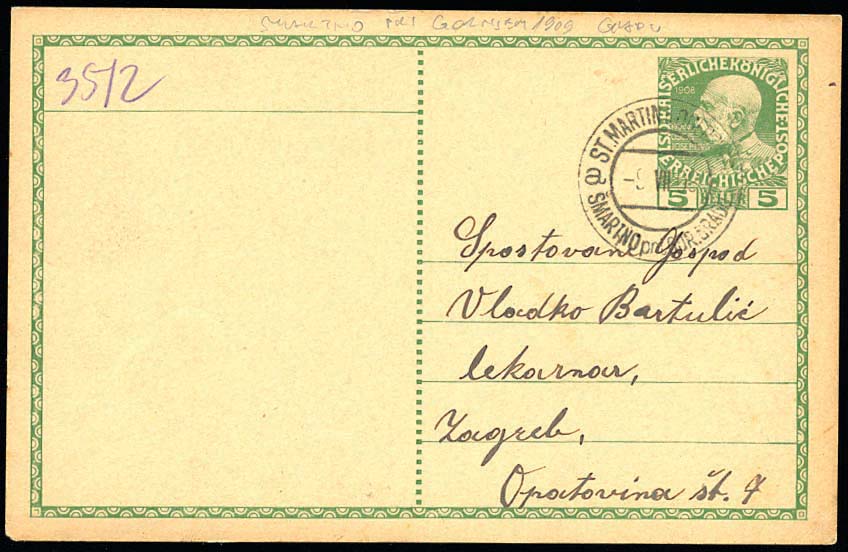 SMARTNO PRI GORNJEM 1909 GRADU
35/2
KAISERLICHEKÖNIGLICHE·ÖSTERREICHISCHE POST
1908
5 HELLER 5
ST. MARTIN
ŠMARTNO pri GOR. GRAD
VII
Spostovani Gospod
Vladko Bartulić
lekarnar,
Zagreb,
Opatovina št. 7